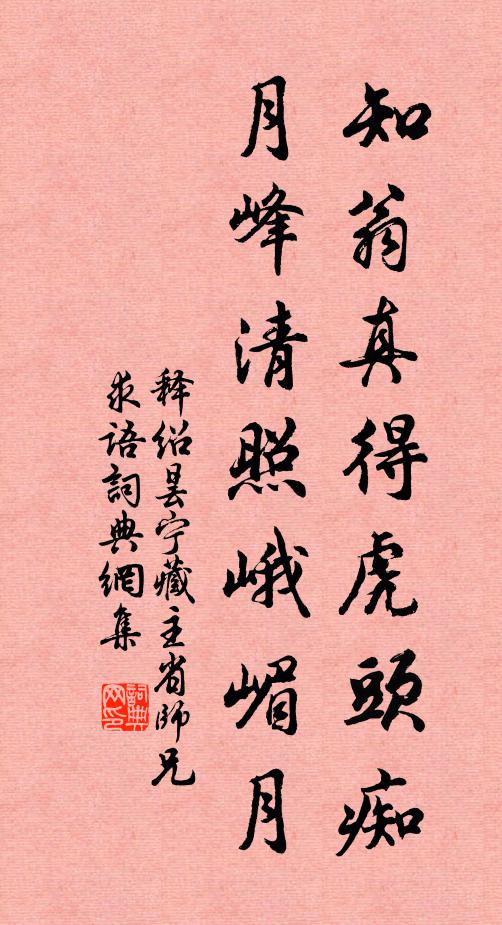 知翁真得虎頭痴
月峰清照峨嵋月
释绍昙宁藏主省師兄
求语詞典網集
詞典网印